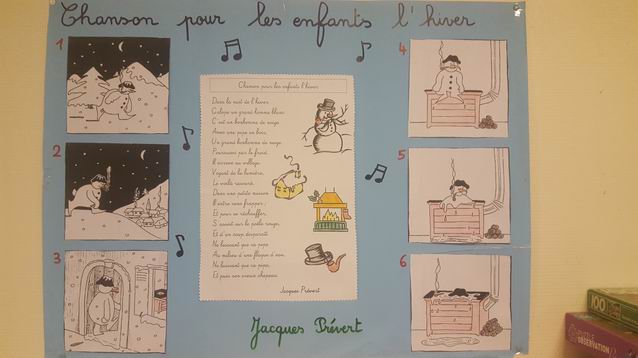 Chanson pour les enfants l'hiver
1
2
3
Chanson pour les enfants l'hiver
Dans la nuit de l'hiver
Galope un grand homme blanc
C'est un bonhomme de neige
Avec une pipe en bois,
Un grand bonhomme de neige
Poursuivi par le froid.
Il arrive au village.
Voyant de la lumière,
Le voilà rassuré.
Dans une petite maison
Il entre sans frapper ;
Et pour se réchauffer,
S'assoit sur le poêle rouge,
Et d'un coup disparaît
Ne laissant que sa pipe
Au milieu d'une flaque d'eau,
Ne laissant que sa pipe,
Et puis son vieux chapeau.
Jacques Prévert
Jacques Prévert
4
5
6
100
OBSERVATION